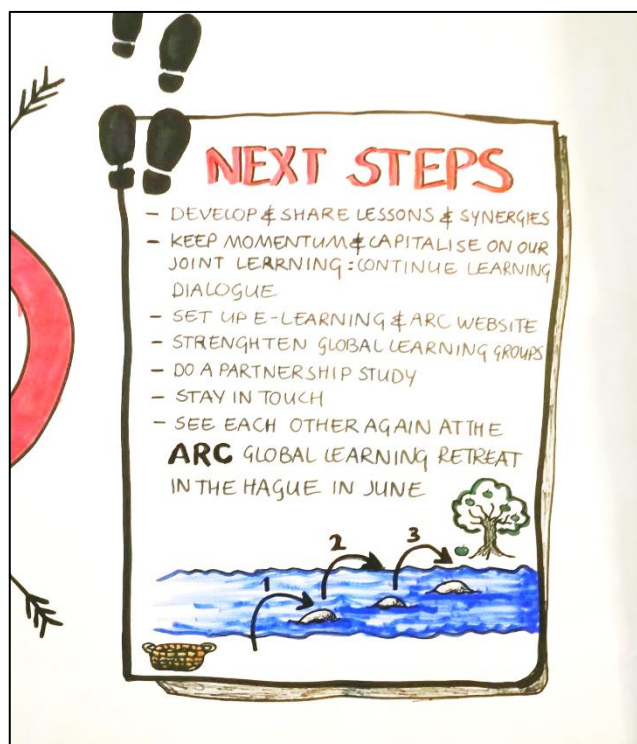 NEXT STEPS
- DEVELOP & SHARE LESSONS & SYNERGIES
- KEEP MOMENTUM & CAPITALISE ON OUR
JOINT LERRNING : CONTINUE LEARNING
DIALOGUE
- SET UP E-LEARNING & ARC WEBSITE
- STRENGHTEN GLOBAL LEARNING GROUPS
- DO A PARTNERSHIP STUDY
- STAY IN TOUCH
- SEE EACH OTHER AGAIN AT THE
ARC GLOBAL LEARNING RETREAT
IN THE HAGUE IN JUNE
1 2 3